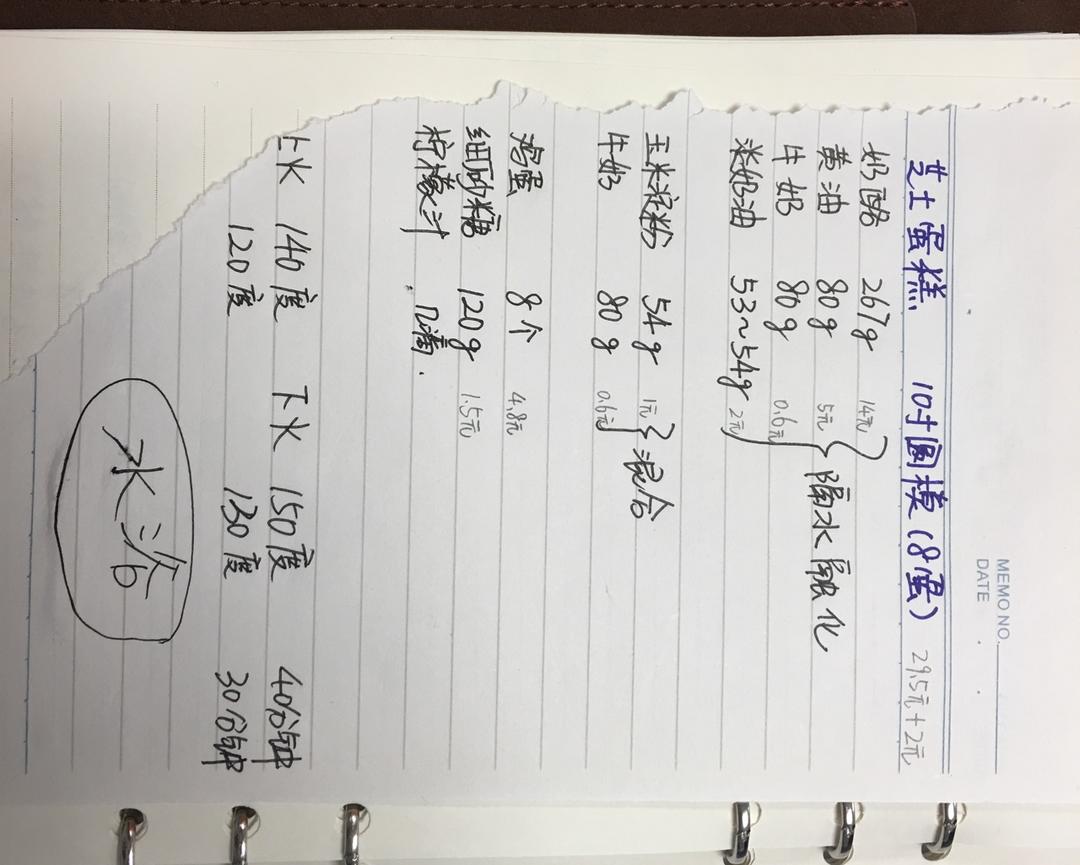 MEMO NO.
DATE
芝士蛋糕 10寸圆模(8蛋) 29.5元+2元
奶酪 267g 14元
黄油 80g 5元 隔水融化
牛奶 80g 0.6元
淡奶油 53~54g 2元
玉米淀粉 54g 1元 混合
牛奶 80g 0.6元
鸡蛋 8个 4.8元
细砂糖 120g 1.5元
柠檬汁 几滴.
上火 140度 下火 150度 40分钟
120度 130度 30分钟
水浴